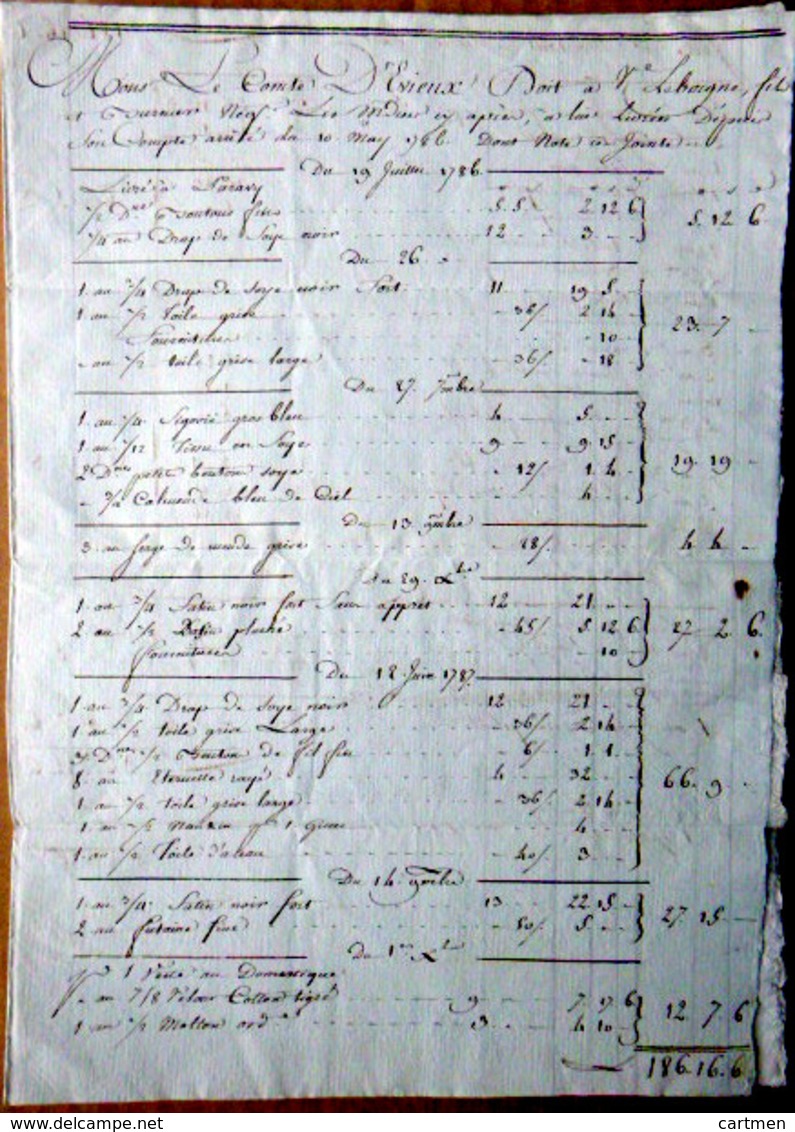 Mons Le Comte D'Evieux Doit à Ve Leborgne, fils
et Fournier Negts Les Mdises cy après, a lui Livrées Depuis
Son Compte arreté du 10 May 1786. Dont Note cy Jointe
Du 19 Juillet 1786.
Livré à
1/2 Dne Boutons fins 5.5 2 12 6
1/4 au Drap de Soye noir 12 3 5 12 6
Du 26
1 au 3/4 Drap de soye noir fort 11 19 5
1 au 1/2 toile grise 36/ 2 14
fourniture 10 23 7
au 1/2 toile grise large 36/ 18
Du 27 7mbre
1 au 1/4 Segovie gros bleu 4 5
1 au 1/12 Tissu en Soye 9 9 15
2 Dnes petit bouton soye 12/ 1 4 19 19
Calmande bleu de Ciel 4
Du 13 9mbre
3 au Serge de grise 28/ 4 4
Du 29 Xbre
1 au 3/4 Satin noir fort Sans appret 12 21
2 au 1/2 Basin pluché 45/ 5 12 6 27 2 6
fourniture 10
Du 18 Juin 1787
1 au 3/4 Drap de Soye noir 12 21
1 au 1/2 toile grise Large 36/ 2 14
3 Dnes 1/2 Bouton de fil fin 6/ 1 1
8 au Eternelle rayé 4 32 66 9
1 au 1/2 toile grise large 36/ 2 14
1 au 1/2 Nankin 4
1 au 1/2 Toile 40/ 3
Du 14 9mbre
1 au 3/4 Satin noir fort 13 22 15
2 au futaine fine 50/ 5 27 15
Du 1er Xbre
pr 1 Veste au Domestique
au 7/8 Velour Cotton 9 7 17 6
1 au 1/2 Molton ordre 3 4 10 12 7 6
186 16 6
cartmen